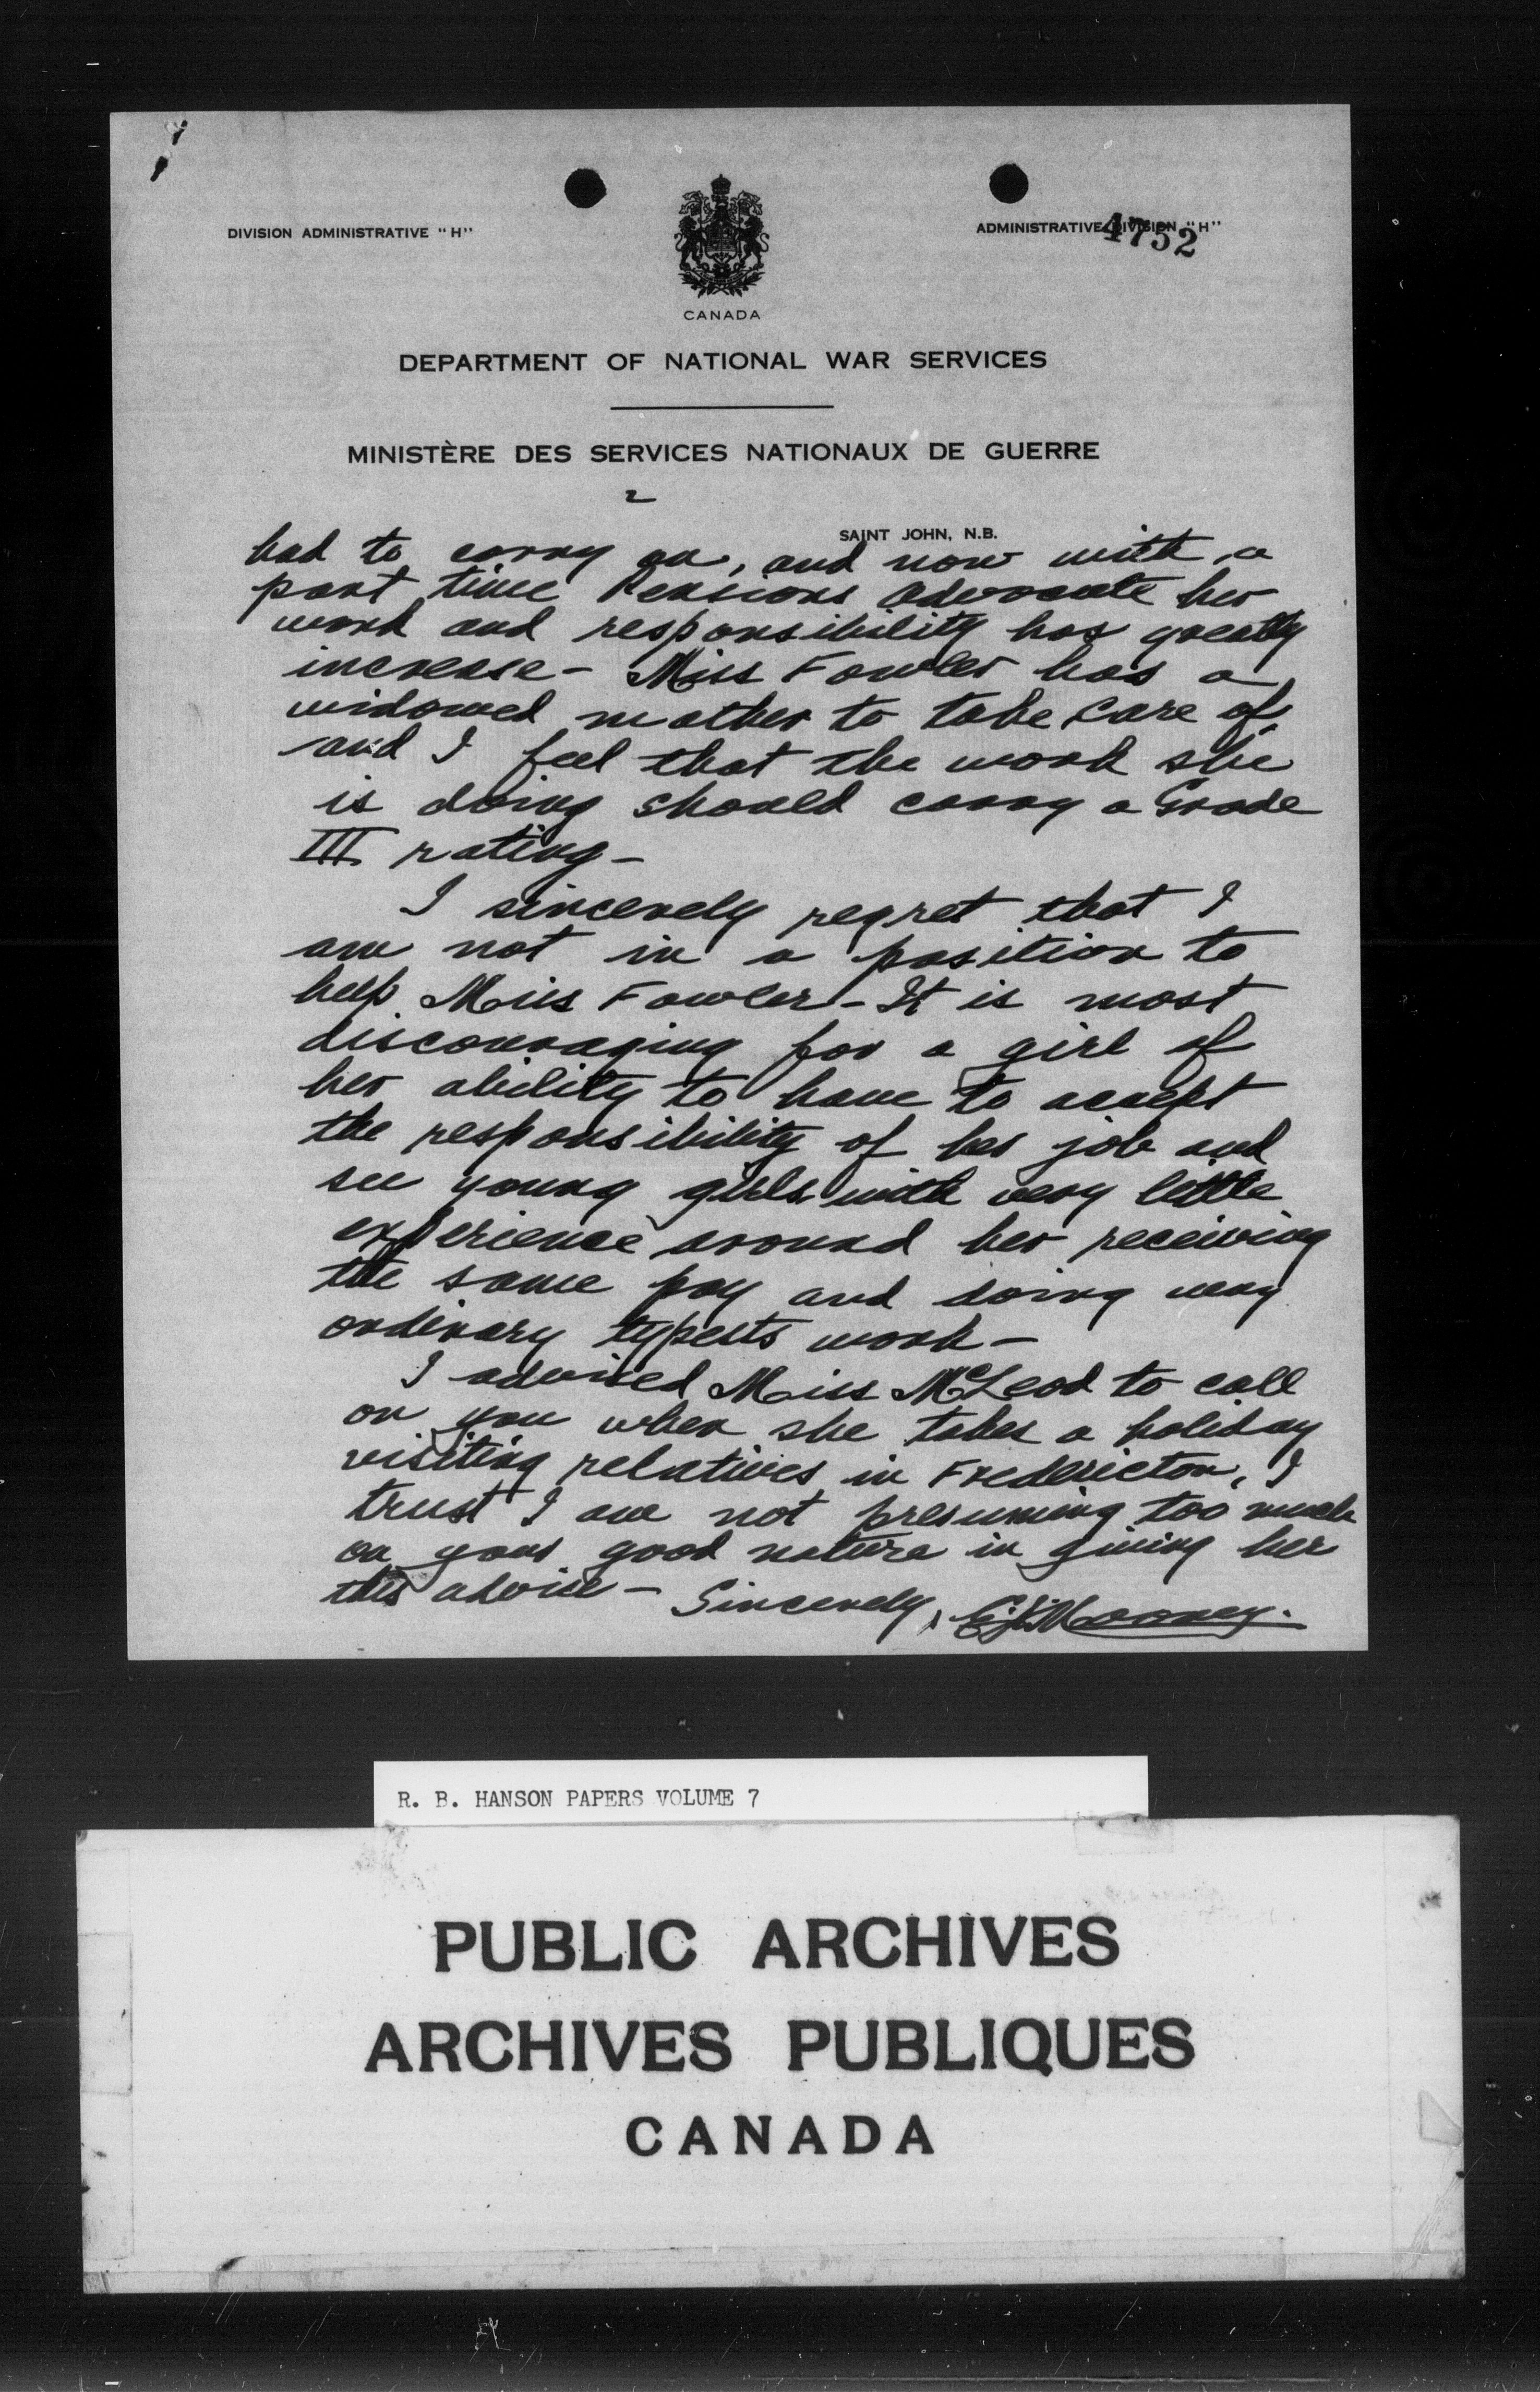 DIVISION ADMINISTRATIVE "H"
ADMINISTRATIVE DIVISION "H"
4752
CANADA
DEPARTMENT OF NATIONAL WAR SERVICES
MINISTÈRE DES SERVICES NATIONAUX DE GUERRE
2
SAINT JOHN, N.B.
had to carry on, and now with a
part time Pensions Advocate her
work and responsibility has greatly
increase - Miss Fowler has a
widowed mother to take care of
and I feel that the work she
is doing should carry a Grade
III rating -
I sincerely regret that I
am not in a position to
help Miss Fowler - It is most
discouraging for a girl of
her ability to have to accept
the responsibility of her job and
see young girls with very little
experience around her receiving
the same pay and doing very
ordinary typests work -
I advised Miss McLeod to call
on you when she takes a holiday
visiting relatives in Fredericton, I
trust I am not presuming too much
on your good nature in giving her
this advise - Sincerely, Mooney.
R. B. HANSON PAPERS VOLUME 7
PUBLIC ARCHIVES
ARCHIVES PUBLIQUES
CANADA